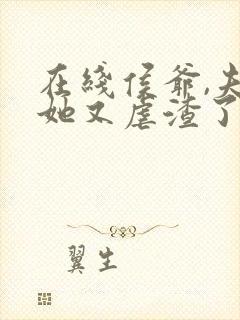 在线侯爷,夫
她又虐渣了
翼生